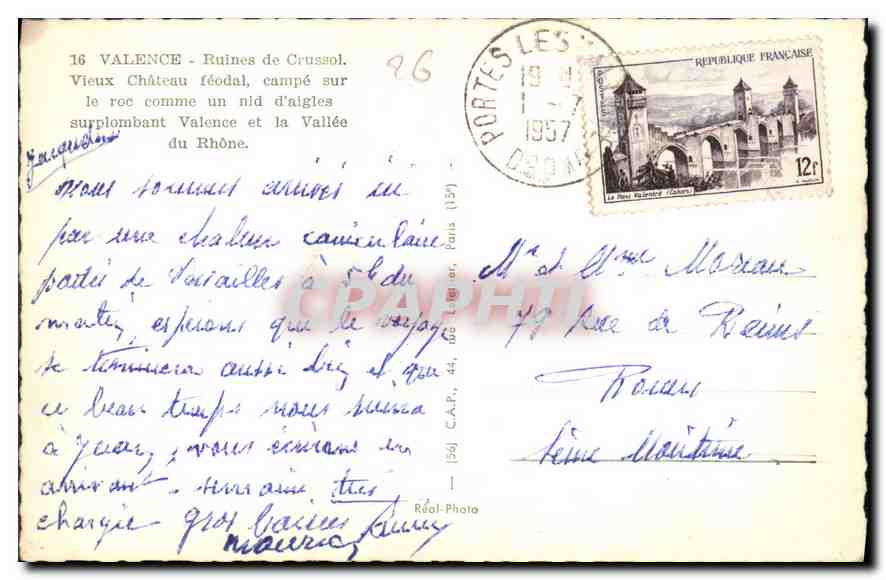 16 VALENCE - Ruines de Crussol.
Vieux Château féodal, campé sur
le roc comme un nid d'aigles
surplombant Valence et la Vallée
du Rhône.
26
PORTES LES
19
1 - 7
1957
DROME
REPUBLIQUE FRANÇAISE
POSTES
12f
Le Pont Valentré (Cahors)
Jacqueline
nous sommes arrivés ici
par une chaleur caniculaire
partis de Versailles à 5h du
matin, espérons que le voyage
se terminera aussi bien et que
ce beau temps nous suivra
à Juan, vous écrirons en
arrivant - semaine très
chargée gros baisers
Maurice
Mr et Mme Moreau
79 Rue de Reims
Rouen
Seine Maritime
(56) C.A.P., 44, rue Letellier, Paris (15e)
Réal-Photo
CPAPHIL